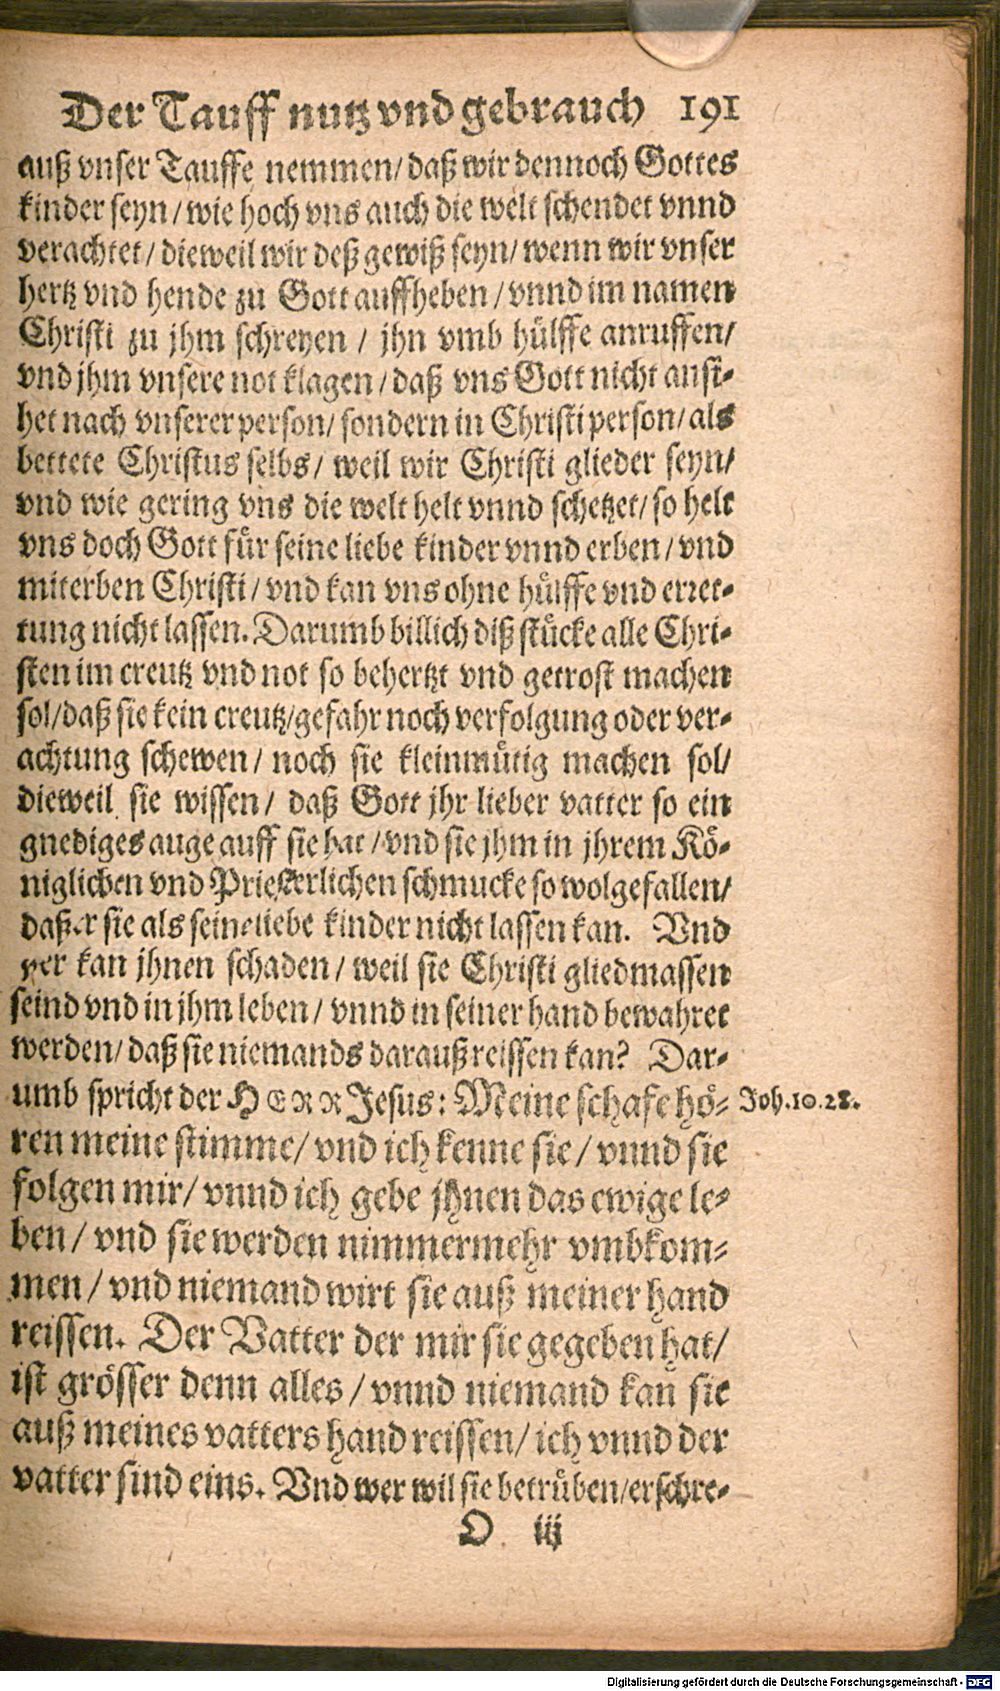 Der Tauff nutz vnd gebrauch 191
auß vnser Tauffe nemmen/ daß wir dennoch Gottes
kinder seyn/ wie hoch vns auch die welt schendet vnnd
verachtet/ dieweil wir deß gewiß seyn/ wenn wir vnser
hertz vnd hende zu Gott auffheben/ vnnd im namen
Christi zu jhm schreyen/ jhn vmb hülffe anruffen/
vnd jhm vnsere not klagen/ daß vns Gott nicht ansi-
het nach vnserer person/ sondern in Christi person/ als
bettete Christus selbs/ weil wir Christi glieder seyn/
vnd wie gering vns die welt helt vnnd schetzet/ so helt
vns doch Gott für seine liebe kinder vnnd erben/ vnd
miterben Christi/ vnd kan vns ohne hülffe vnd erret-
tung nicht lassen. Darumb billich diß stücke alle Chri-
sten im creutz vnd not so behertzt vnd getrost machen
sol/ daß sie kein creutz/ gefahr noch verfolgung oder ver-
achtung schewen/ noch sie kleinmütig machen sol/
dieweil sie wissen/ daß Gott jhr lieber vatter so ein
gnediges auge auff sie hat/ vnd sie jhm in jhrem Kö-
niglichen vnd Priesterlichen schmucke so wolgefallen/
daß er sie als seine liebe kinder nicht lassen kan. Vnd
wer kan jhnen schaden/ weil sie Christi gliedmassen
seind vnd in jhm leben/ vnnd in seiner hand bewahret
werden/ daß sie niemands darauß reissen kan? Dar-
umb spricht der HERR Jesus: Meine schafe hö- Joh.10.28.
ren meine stimme/ vnd ich kenne sie/ vnnd sie
folgen mir/ vnnd ich gebe jhnen das ewige le-
ben/ vnd sie werden nimmermehr vmbkom-
men/ vnd niemand wirt sie auß meiner hand
reissen. Der Vatter der mir sie gegeben hat/
ist grösser denn alles/ vnnd niemand kan sie
auß meines vatters hand reissen/ ich vnnd der
vatter sind eins. Vnd wer wil sie betrüben/ erschre-
O iij
Digitalisierung gefördert durch die Deutsche Forschungsgemeinschaft - DFG